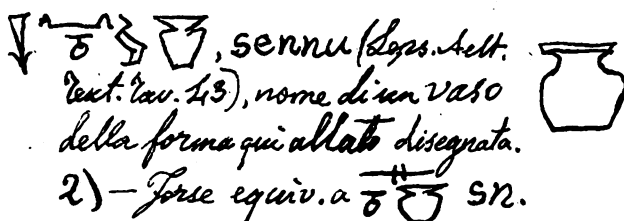 , sennu (Leps. Aelt.
Text. Tav. 43), nome di un vaso
della forma qui allato disegnata.
2) — Forse equiv. a sn.